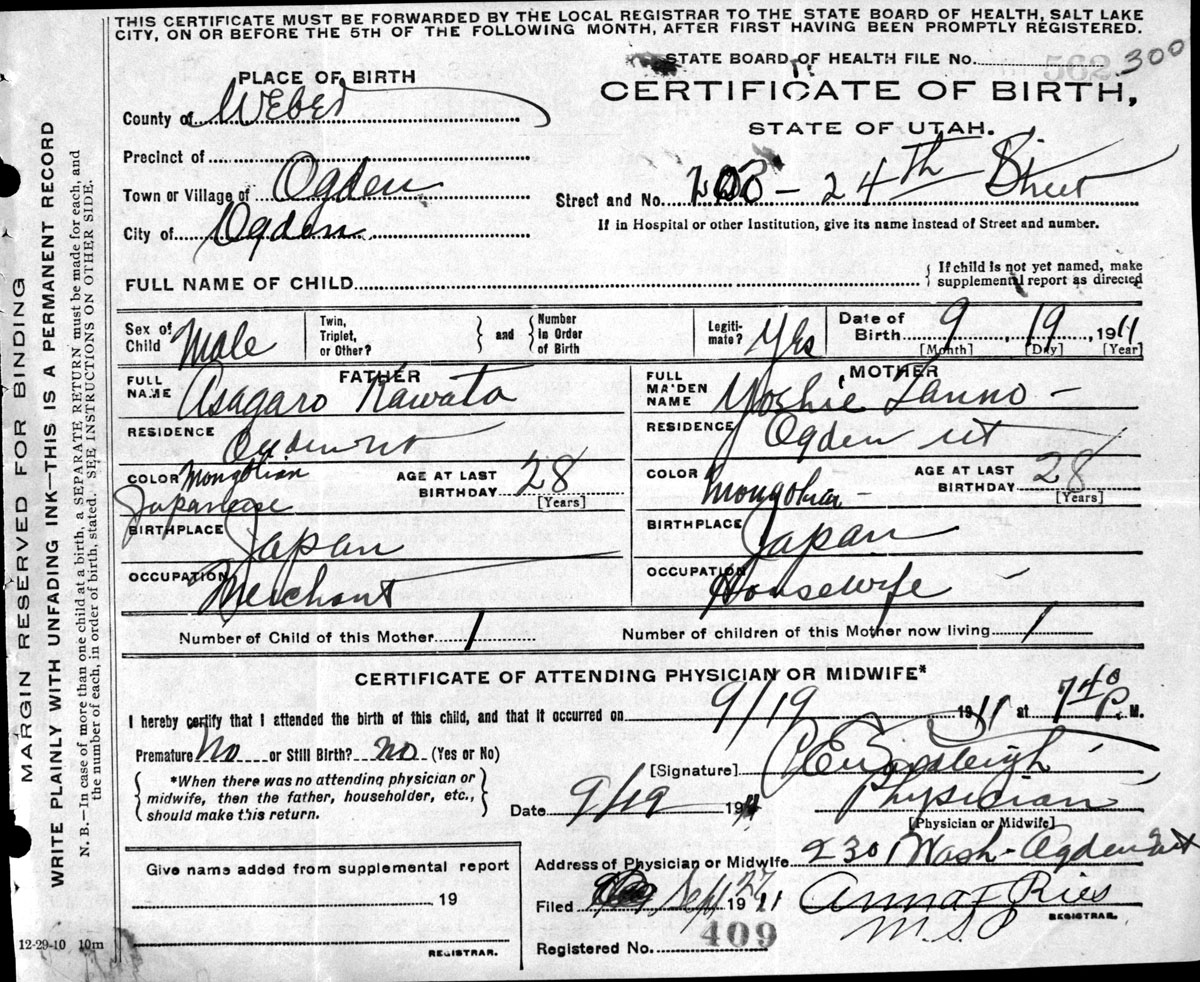 THIS CERTIFICATE MUST BE FORWARDED BY THE LOCAL REGISTRAR TO THE STATE BOARD OF HEALTH, SALT LAKE
CITY, ON OR BEFORE THE 5TH OF THE FOLLOWING MONTH, AFTER FIRST HAVING BEEN PROMPTLY REGISTERED.
STATE BOARD OF HEALTH FILE No. 562 300
PLACE OF BIRTH
CERTIFICATE OF BIRTH,
STATE OF UTAH.
County of Weber
Precinct of
Town or Village of Ogden
Street and No. - 24th Street
City of Ogden
If in Hospital or other Institution, give its name instead of Street and number.
FULL NAME OF CHILD
If child is not yet named, make
supplemental report as directed
Sex of Child Male
Twin, Triplet, or Other?
and
Number in Order of Birth
Legiti-mate? Yes
Date of Birth 9 19 1911
[Month] [Day] [Year]
FATHER
MOTHER
FULL NAME Asagaro Kawata
FULL MAIDEN NAME Yoshie Tanno -
RESIDENCE Ogden ut
RESIDENCE Ogden ut
COLOR Mongolian Japanese
AGE AT LAST BIRTHDAY 28 [Years]
COLOR Mongolian -
AGE AT LAST BIRTHDAY 28 [Years]
BIRTHPLACE Japan
BIRTHPLACE Japan
OCCUPATION Merchant
OCCUPATION Housewife -
Number of Child of this Mother 1
Number of children of this Mother now living 1
CERTIFICATE OF ATTENDING PHYSICIAN OR MIDWIFE*
I hereby certify that I attended the birth of this child, and that it occurred on 9/19 1911 at 7 40 P. M.
Premature No or Still Birth? no (Yes or No)
[Signature]
*When there was no attending physician or
midwife, then the father, householder, etc.,
should make this return.
Date 9/19 1911
Physician
[Physician or Midwife]
Address of Physician or Midwife 2301 Wash - Ogden Ut
Give name added from supplemental report
19
REGISTRAR.
Filed Sept 27 1911
Anna F Ries
REGISTRAR.
Registered No. 409
12-29-10 10m
MARGIN RESERVED FOR BINDING
WRITE PLAINLY WITH UNFADING INK—THIS IS A PERMANENT RECORD
N. B.—In case of more than one child at a birth, a SEPARATE RETURN must be made for each, and
the number of each, in order of birth, stated. SEE INSTRUCTIONS ON OTHER SIDE.